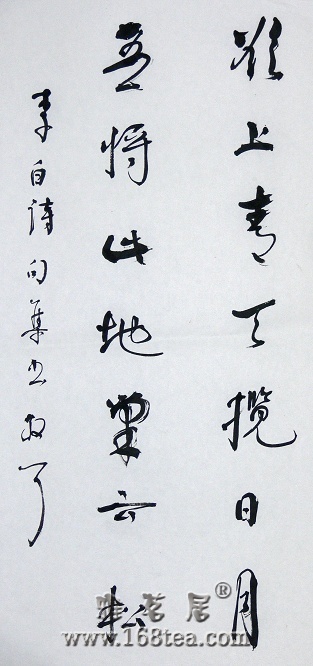 欲上青天揽日月
吾将此地巢云松
李白诗句集书
唯茗居®
www.168tea.com